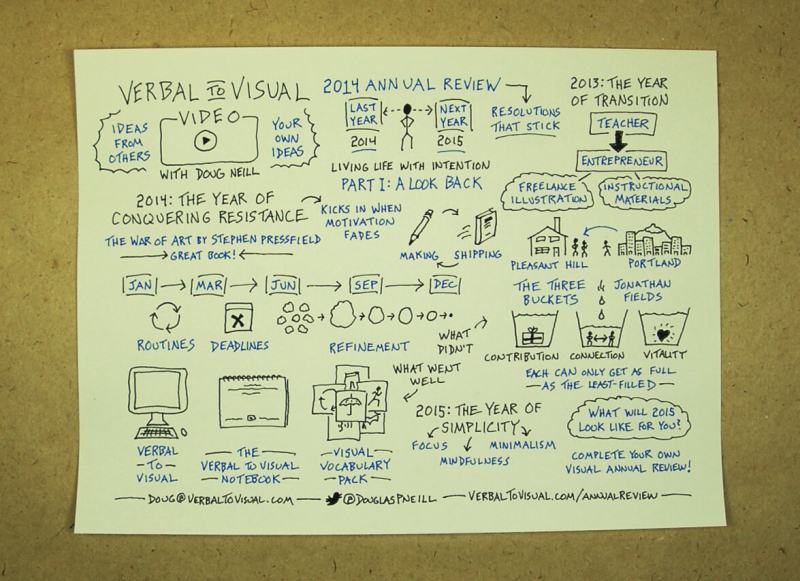 VERBAL TO VISUAL
VIDEO
IDEAS
FROM
OTHERS
YOUR
OWN
IDEAS
WITH DOUG NEILL
2014 ANNUAL REVIEW
LAST
YEAR
2014
NEXT
YEAR
2015
RESOLUTIONS
THAT STICK
LIVING LIFE WITH INTENTION
PART I: A LOOK BACK
2013: THE YEAR
OF TRANSITION
TEACHER
ENTREPRENEUR
FREELANCE
ILLUSTRATION
INSTRUCTIONAL
MATERIALS
PLEASANT HILL
PORTLAND
2014: THE YEAR OF
CONQUERING RESISTANCE
KICKS IN WHEN
MOTIVATION
FADES
THE WAR OF ART BY STEPHEN PRESSFIELD
GREAT BOOK!
MAKING
SHIPPING
JAN
MAR
JUN
SEP
DEC
ROUTINES
DEADLINES
REFINEMENT
WHAT
DIDN'T
WHAT WENT
WELL
THE THREE
BUCKETS
JONATHAN
FIELDS
CONTRIBUTION
CONNECTION
VITALITY
EACH CAN ONLY GET AS FULL
AS THE LEAST-FILLED
VERBAL
TO
VISUAL
THE
VERBAL TO VISUAL
NOTEBOOK
VISUAL
VOCABULARY
PACK
2015: THE YEAR OF
SIMPLICITY
FOCUS
MINDFULNESS
MINIMALISM
WHAT WILL 2015
LOOK LIKE FOR YOU?
COMPLETE YOUR OWN
VISUAL ANNUAL REVIEW!
DOUG@VERBALTOVISUAL.COM
@DOUGLASPNEILL
VERBALTOVISUAL.COM/ANNUALREVIEW